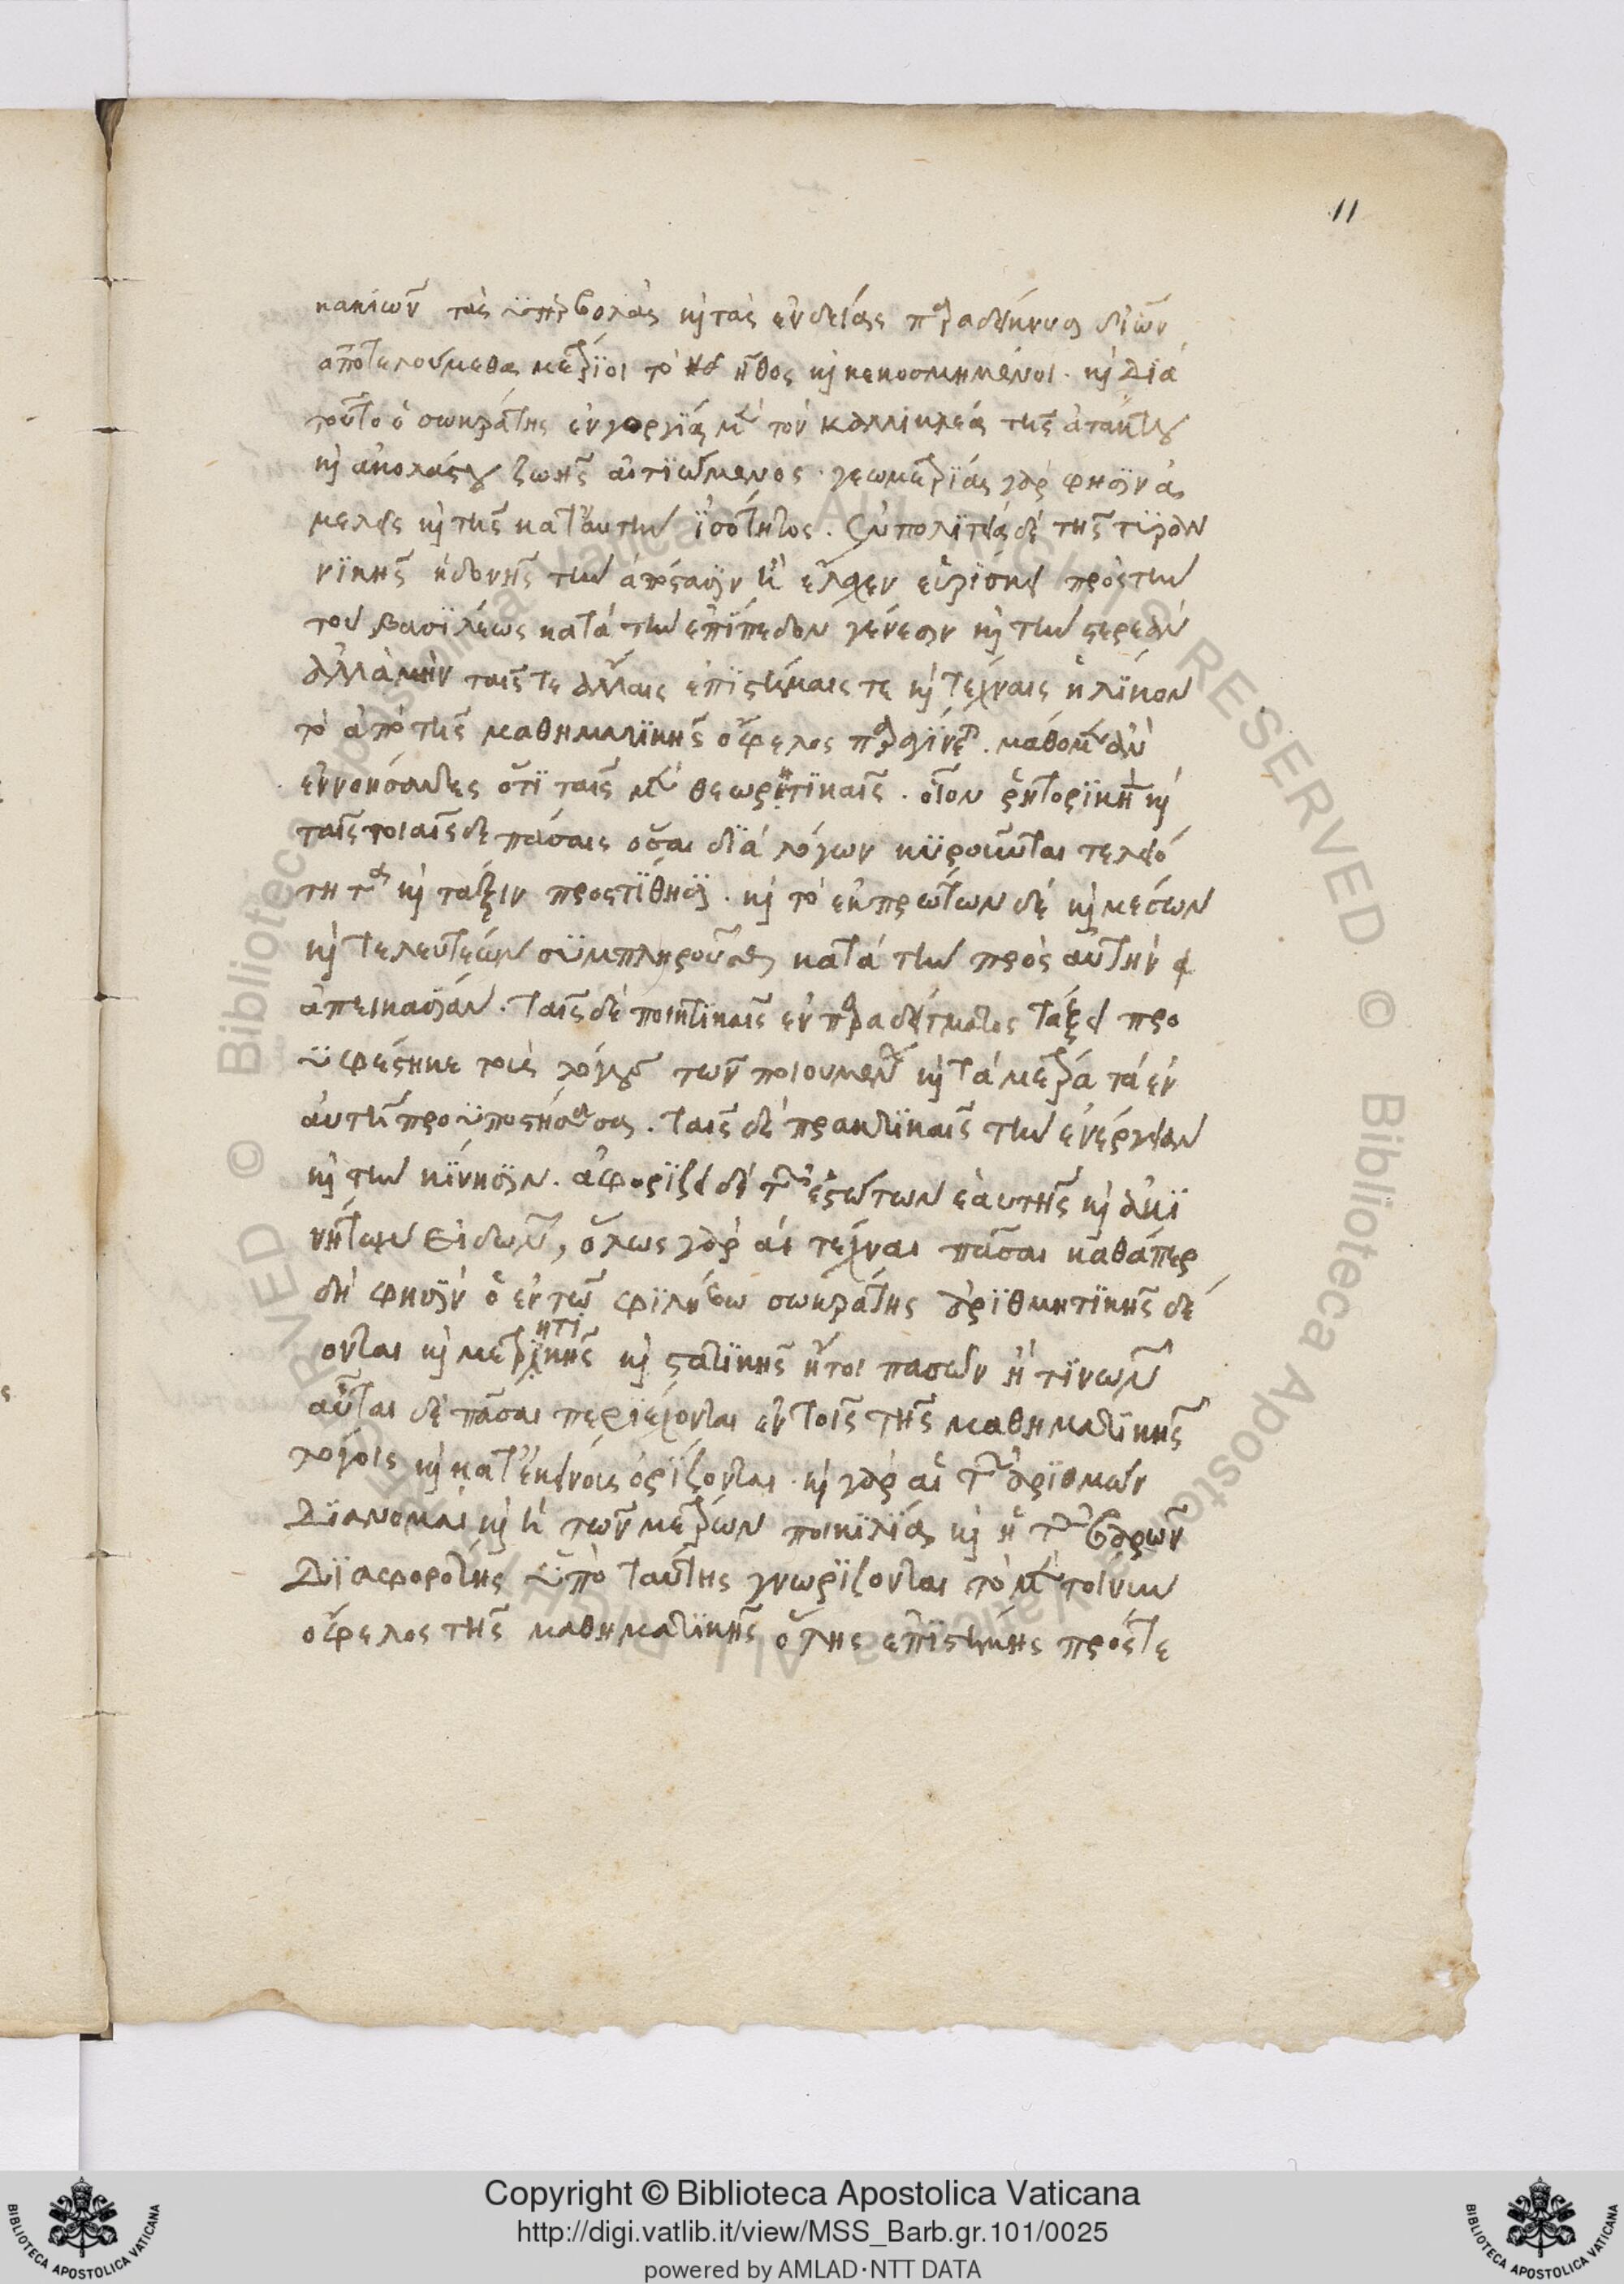 11
κακιῶν τὰς ὑπερβολὰς καὶ τὰς ἐνδείας παραδείκνυσι δι' ὧν
ἀποτελούμεθα μέτριοι τὸ ἦθος καὶ κεκοσμημένοι. καὶ διὰ
τοῦτο ὁ σωκράτης ἐν γοργίᾳ μὲν τὸν καλλικλέα τῆς ἀτάκτου
καὶ ἀκολάστου ζωῆς αἰτιώμενος. γεωμετρίας γὰρ φησὶν ἀ
μελεῖς καὶ τῆς κατ' αὐτὴν ἰσότητος. ἐν πολιτείᾳ δὲ τῆς τυραν
νικῆς ἡδονῆς τὴν ἀπόστασιν ἣν εἶχεν εὑρίσκει πρὸς τὴν
τοῦ βασιλέως κατὰ τὴν ἐπίπεδον γένεσιν καὶ τὴν στερεάν
ἀλλὰ μὴν ταῖς τε ἄλλαις ἐπιστήμαις τε καὶ τέχναις ἡλίκον
τὸ ἀπὸ τῆς μαθηματικῆς ὄφελος παραγίνεται. μάθοιμεν ἂν
ἐννοήσαντες ὅτι ταῖς μὲν θεωρητικαῖς. οἷον ῥητορικῇ καὶ
ταῖς τοιαῖσδε πάσαις ὅσαι διὰ λόγων κυροῦνται τελειό
τητα καὶ τάξιν προστίθησι. καὶ τὸ ἐκ πρώτων δὲ καὶ μέσων
καὶ τελευτέων συμπληροῦσθαι κατὰ τὴν πρὸς αὐτὴν
ἀπεικασίαν. ταῖς δὲ ποιητικαῖς ἐν παραδείγματος τάξει προ
ϋφέστηκε τοὺς λόγους τῶν ποιουμένων καὶ τὰ μέτρα τὰ ἐν
αὐτῇ προϋποστήσασα. ταῖς δὲ πρακτικαῖς τὴν ἐνέργειαν
καὶ τὴν κίνησιν. ἀφορίζει δὲ τῶν ἑστώτων ἑαυτῆς καὶ ἀκι
νήτων εἰδῶν, ὅλως γὰρ αἱ τέχναι πᾶσαι καθάπερ
δὴ φησὶν ὁ ἐν τῷ φιλήβῳ σωκράτης ἀριθμητικῆς δέ
ονται καὶ μετρητικῆς καὶ στατικῆς ἤτοι πασῶν ἢ τινῶν
αὗται δὲ πᾶσαι περιέχονται ἐν τοῖς τῆς μαθηματικῆς
λόγοις καὶ κατ' ἐκείνοις ὁρίζονται. καὶ γὰρ αἱ τῶν ἀριθμῶν
διανομαὶ καὶ ἡ τῶν μέτρων ποικιλία καὶ ἡ τῶν βαρῶν
διαφορότης ὑπὸ ταύτης γνωρίζονται τὸ μὲν τοίνυν
ὄφελος τῆς μαθηματικῆς ὅλης ἐπιστήμης πρός τε
Copyright © Biblioteca Apostolica Vaticana
http://digi.vatlib.it/view/MSS_Barb.gr.101/0025
powered by AMLAD·NTT DATA
BIBLIOTECA APOSTOLICA VATICANA
BIBLIOTECA APOSTOLICA VATICANA